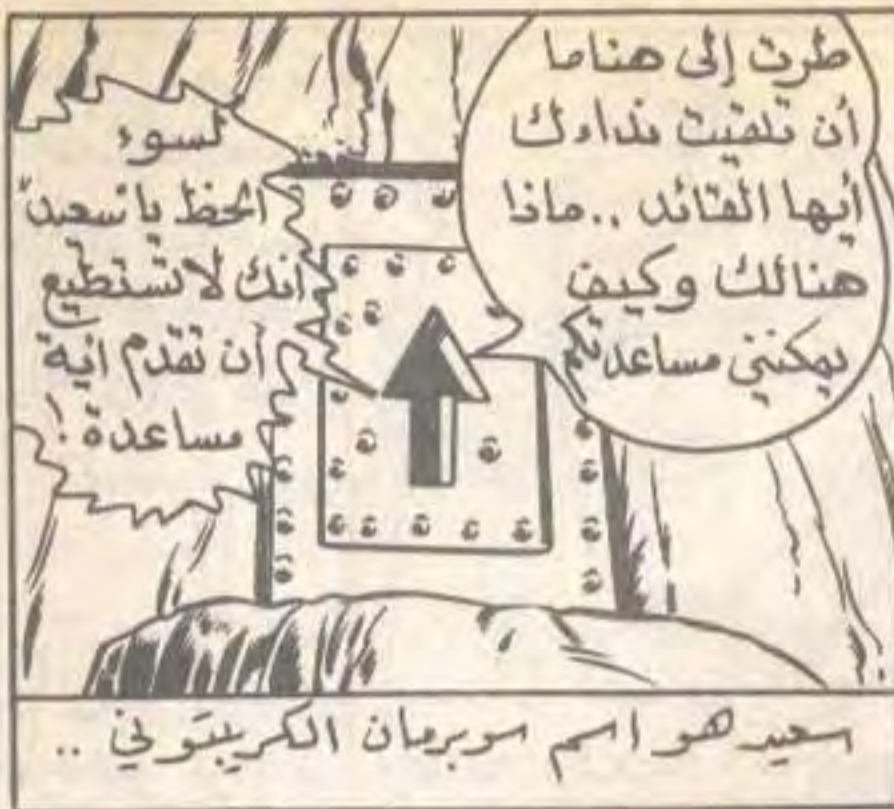 طرت إلى هنا ما
أن تلقيت نداءك
أيها القائد .. ماذا
هنالك وكيف
يمكنني مساعدتكم
لسوء
الحظ يا "سعيد"
انك لا تستطيع
أن تقدم أية
مساعدة !
سعيد هو اسم سوبرمان الكريبتوني ..